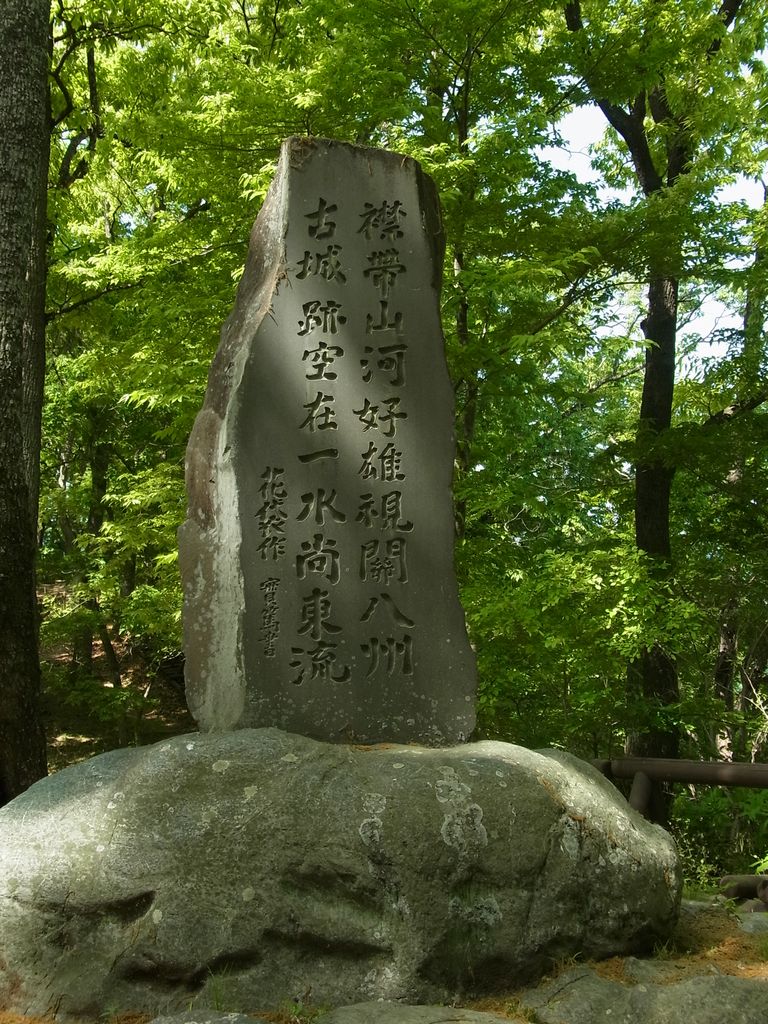 襟帯山河好雄視関八州
古城跡空在一水尚東流
花袋作 實篤書